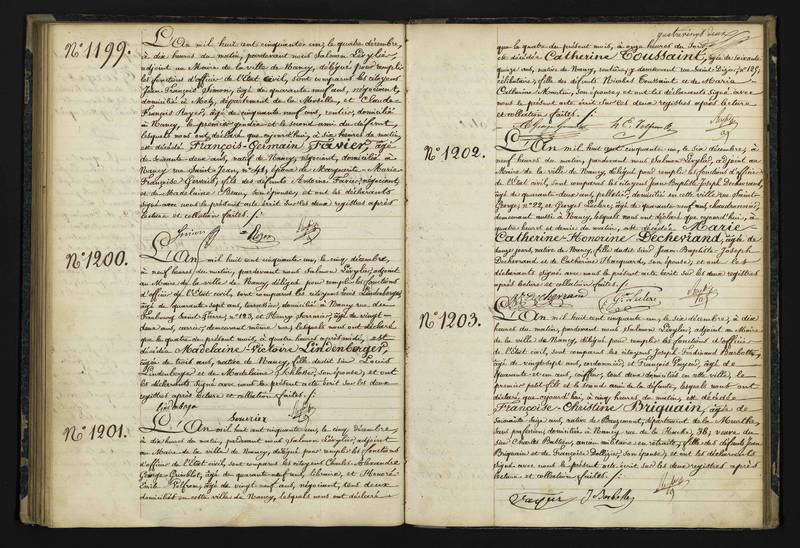 N.° 1199.
L'An mil huit cent cinquante un, le quatre décembre,
à dix heures du matin, pardevant nous Salmon
adjoint au Maire de la ville de Nancy, délégué pour remplir
les fonctions d'officier de l'Etat civil, sont comparus les citoyens
Jean François Simon, âgé de quarante neuf ans, négociant,
domicilié à Metz, département de la Moselle, et Claude
François Royer, âgé de cinquante neuf ans, rentier, domicilié
à Nancy, le premier gendre et le second ami du défunt,
lesquels nous ont déclaré que aujourd'hui, à six heures du matin,
est décédé François-Germain Favier, âgé
de soixante deux ans, natif de Nancy, négociant, domicilié à
Nancy rue Saint Jean, n.° époux de Marguerite Marie
Françoise Gervais, fils des défunts Antoine Favier, négociant,
et de Madelaine son épouse; et ont les déclarants
signé avec nous le présent acte écrit sur les deux registres après
lecture et collation faites.
Simon Royer
N.° 1200.
L'An mil huit cent cinquante un, le cinq décembre,
à neuf heures du matin, pardevant nous Salmon adjoint
au Maire de la ville de Nancy, délégué pour remplir les fonctions
d'officier de l'Etat civil, sont comparus les citoyens Louis Lindenberger,
âgé de quarante sept ans, domicilié à Nancy rue du
Faubourg Saint Pierre, n.° 123, et Henry âgé de vingt
deux ans, demeurant même rue, lesquels nous ont déclaré
que le quatre du présent mois, à quatre heures après midi, est
décédée Madelaine-Victoire Lindenberger,
âgée de trois ans, native de Nancy, fille dudit sieur Louis
Lindenberger et de Madelaine son épouse; et ont
les déclarants signé avec nous le présent acte écrit sur les deux
registres après lecture et collation faites.
N.° 1201.
L'An mil huit cent cinquante un, le cinq décembre,
à dix heures du matin, pardevant nous Salmon adjoint
au Maire de la ville de Nancy, délégué pour remplir les fonctions
d'officier de l'Etat civil, sont comparus les citoyens Charles Alexandre
George âgé de quarante neuf ans, libraire, et Honoré
Emile âgé de vingt neuf ans, négociant, tous deux
domiciliés en cette ville de Nancy, lesquels nous ont déclaré
quatrevingt deux
que le quatre du présent mois, à onze heures du soir,
est décédée Catherine Toussaint, âgée de soixante
quinze ans, native de Nancy, rentière, y demeurant rue Saint Dizier, n.° 125,
célibataire, fille des défunts Nicolas Toussaint et de Marie
Catherine son épouse; et ont les déclarants signé avec
nous le présent acte écrit sur les deux registres après lecture
et collation faites.
N.° 1202.
L'An mil huit cent cinquante un, le six décembre, à
neuf heures du matin, pardevant nous Salmon adjoint au
Maire de la ville de Nancy, délégué pour remplir les fonctions d'officier
de l'Etat civil, sont comparus les citoyens Jean Baptiste Joseph Dechevrand,
âgé de quarante deux ans, domicilié en cette ville rue Saint
n.° 22, et Georges Leclerc, âgé de quarante neuf ans, chaudronnier,
demeurant aussi à Nancy, lesquels nous ont déclaré que aujourd'hui, à
quatre heures et demie du matin, est décédée Marie
Catherine-Honorine Dechevrand, âgée de
jours, native de Nancy, fille dudit sieur Jean Baptiste Joseph
Dechevrand et de Catherine Hacquard, son épouse; et ont les
déclarants signé avec nous le présent acte écrit sur les deux registres
après lecture et collation faites.
G. Leclerc
N.° 1203.
L'An mil huit cent cinquante un, le six décembre, à dix
heures du matin, pardevant nous Salmon adjoint au Maire
de la ville de Nancy, délégué pour remplir les fonctions d'officier de
l'Etat civil, sont comparus les citoyens Joseph Ferdinand
âgé de vingtsept ans, cordonnier, et François âgé de
quarante et un ans, coiffeur, tous deux domiciliés en cette ville; le
premier petit-fils et le second ami de la défunte, lesquels nous ont
déclaré, que aujourd'hui, à cinq heures du matin, est décédée
Françoise-Christine Briquain, âgée de
soixante seize ans, native de département de la Meurthe,
sans profession, domiciliée à Nancy rue de la 36, veuve du
sieur Charles ancien militaire en retraite, fille des défunts Jean
Briquain et de Françoise son épouse; et ont les déclarants
signé avec nous le présent acte écrit sur les deux registres après
lecture et collation faites.